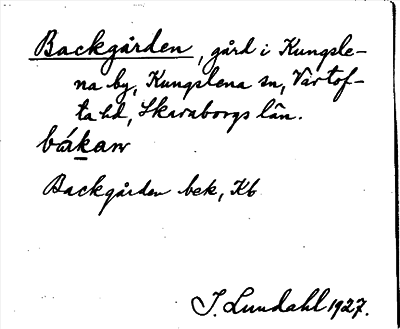 Backgården, gård i Kungsle-
na by, Kungslena sn, Vartof-
ta hd, Skaraborgs län.
bákaṇ
Backgården bek, Kb
I. Lundahl 1927.